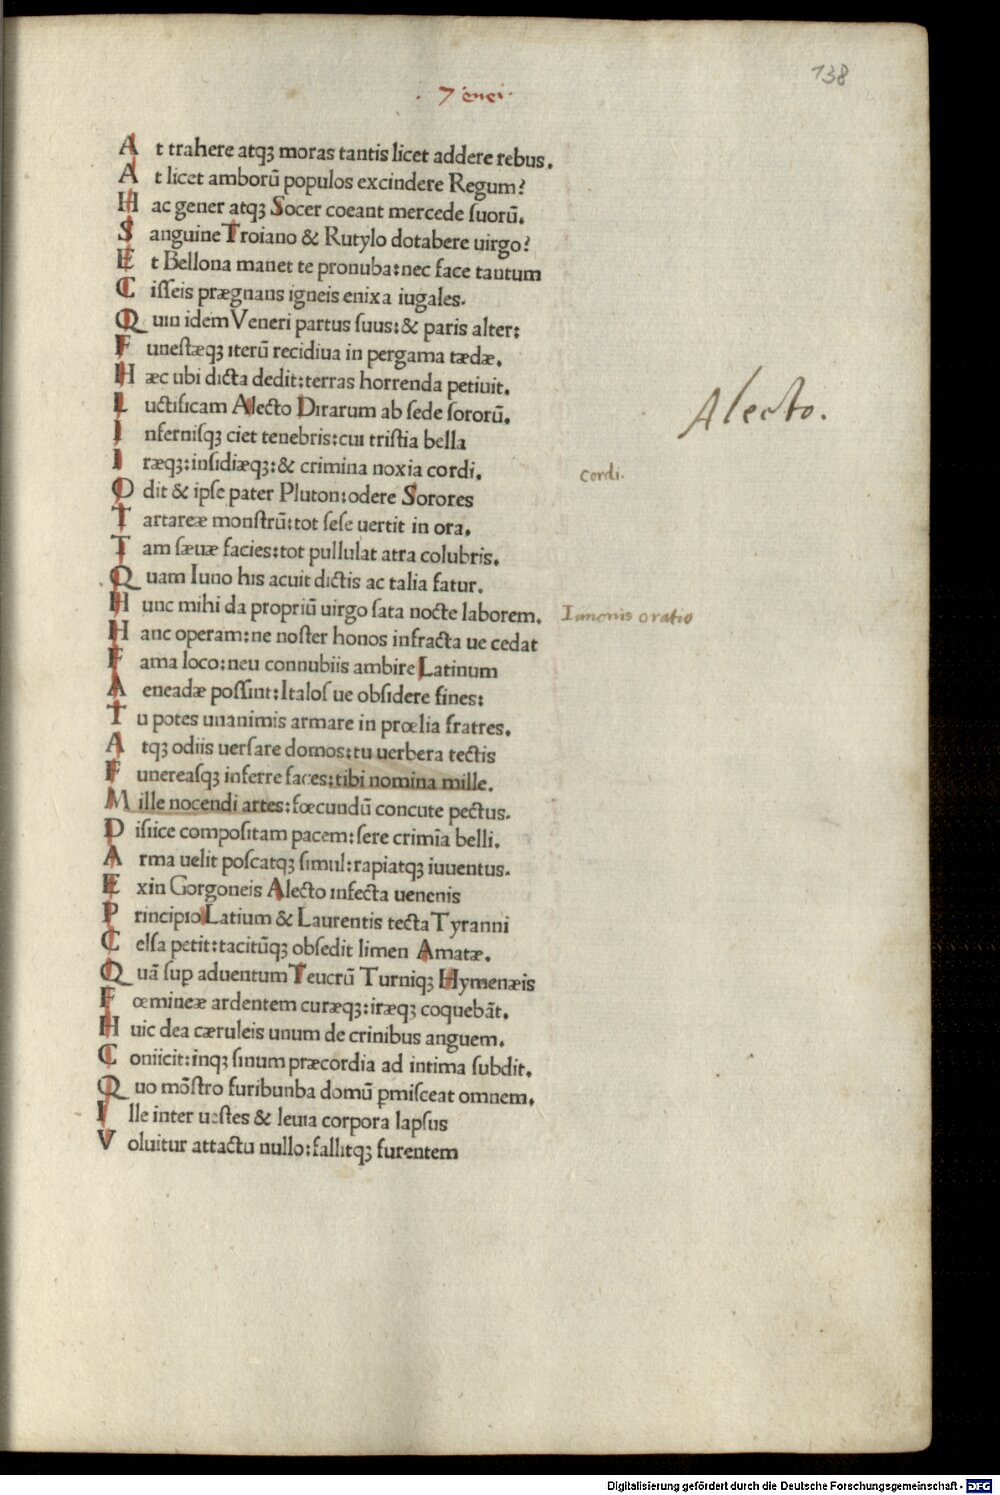 138
· 7 enei ·
A t trahere atqꝫ moras tantis licet addere rebus.
A t licet amborū populos excindere Regum?
H ac gener atqꝫ Socer coeant mercede ſuorū.
S anguine Troiano & Rutylo dotabere uirgo?
E t Bellona manet te pronuba: nec face tantum
C iſſeis prægnans igneis enixa iugales.
Q uin idem Veneri partus ſuus: & paris alter:
F uneſtæqꝫ iterū recidiua in pergama tædæ.
H æc ubi dicta dedit: terras horrenda petiuit.
L uctificam Alecto Dirarum ab ſede ſororū.
I nferniſqꝫ ciet tenebris: cui triſtia bella
I ræqꝫ: inſidiæqꝫ: & crimina noxia cordi.
O dit & ipſe pater Pluton: odere Sorores
T artareæ monſtrū: tot ſeſe uertit in ora.
T am ſæuæ facies: tot pullulat atra colubris.
Q uam Iuno his acuit dictis ac talia fatur.
H unc mihi da propriū uirgo ſata nocte laborem.
H anc operam: ne noſter honos infracta ue cedat
F ama loco: neu connubiis ambire Latinum
A eneadæ poſſint: Italoſ ue obſidere fines:
T u potes unanimis armare in prœlia fratres.
A tqꝫ odiis uerſare domos: tu uerbera tectis
F unereaſqꝫ inferre faces: tibi nomina mille.
M ille nocendi artes: fœcundū concute pectus.
D iſiice compoſitam pacem: ſere crimīa belli.
A rma uelit poſcatqꝫ ſimul: rapiatqꝫ iuuentus.
E xin Gorgoneis Alecto infecta uenenis
P rincipio Latium & Laurentis tecta Tyranni
C elſa petit: tacitūqꝫ obſedit limen Amatæ.
Q uā ſuꝑ aduentum Teucrū Turniqꝫ Hymenæis
F œmineæ ardentem curæqꝫ: iræqꝫ coquebāt.
H uic dea cæruleis unum de crinibus anguem.
C oniicit: inqꝫ ſinum præcordia ad intima ſubdit.
Q uo mōſtro furibunba domū ꝑmiſceat omnem.
I lle inter ueſtes & leuia corpora lapſus
V oluitur attactu nullo: fallitqꝫ furentem
Alecto.
cordi.
Iunonis oratio
Digitalisierung gefördert durch die Deutsche Forschungsgemeinschaft - DFG